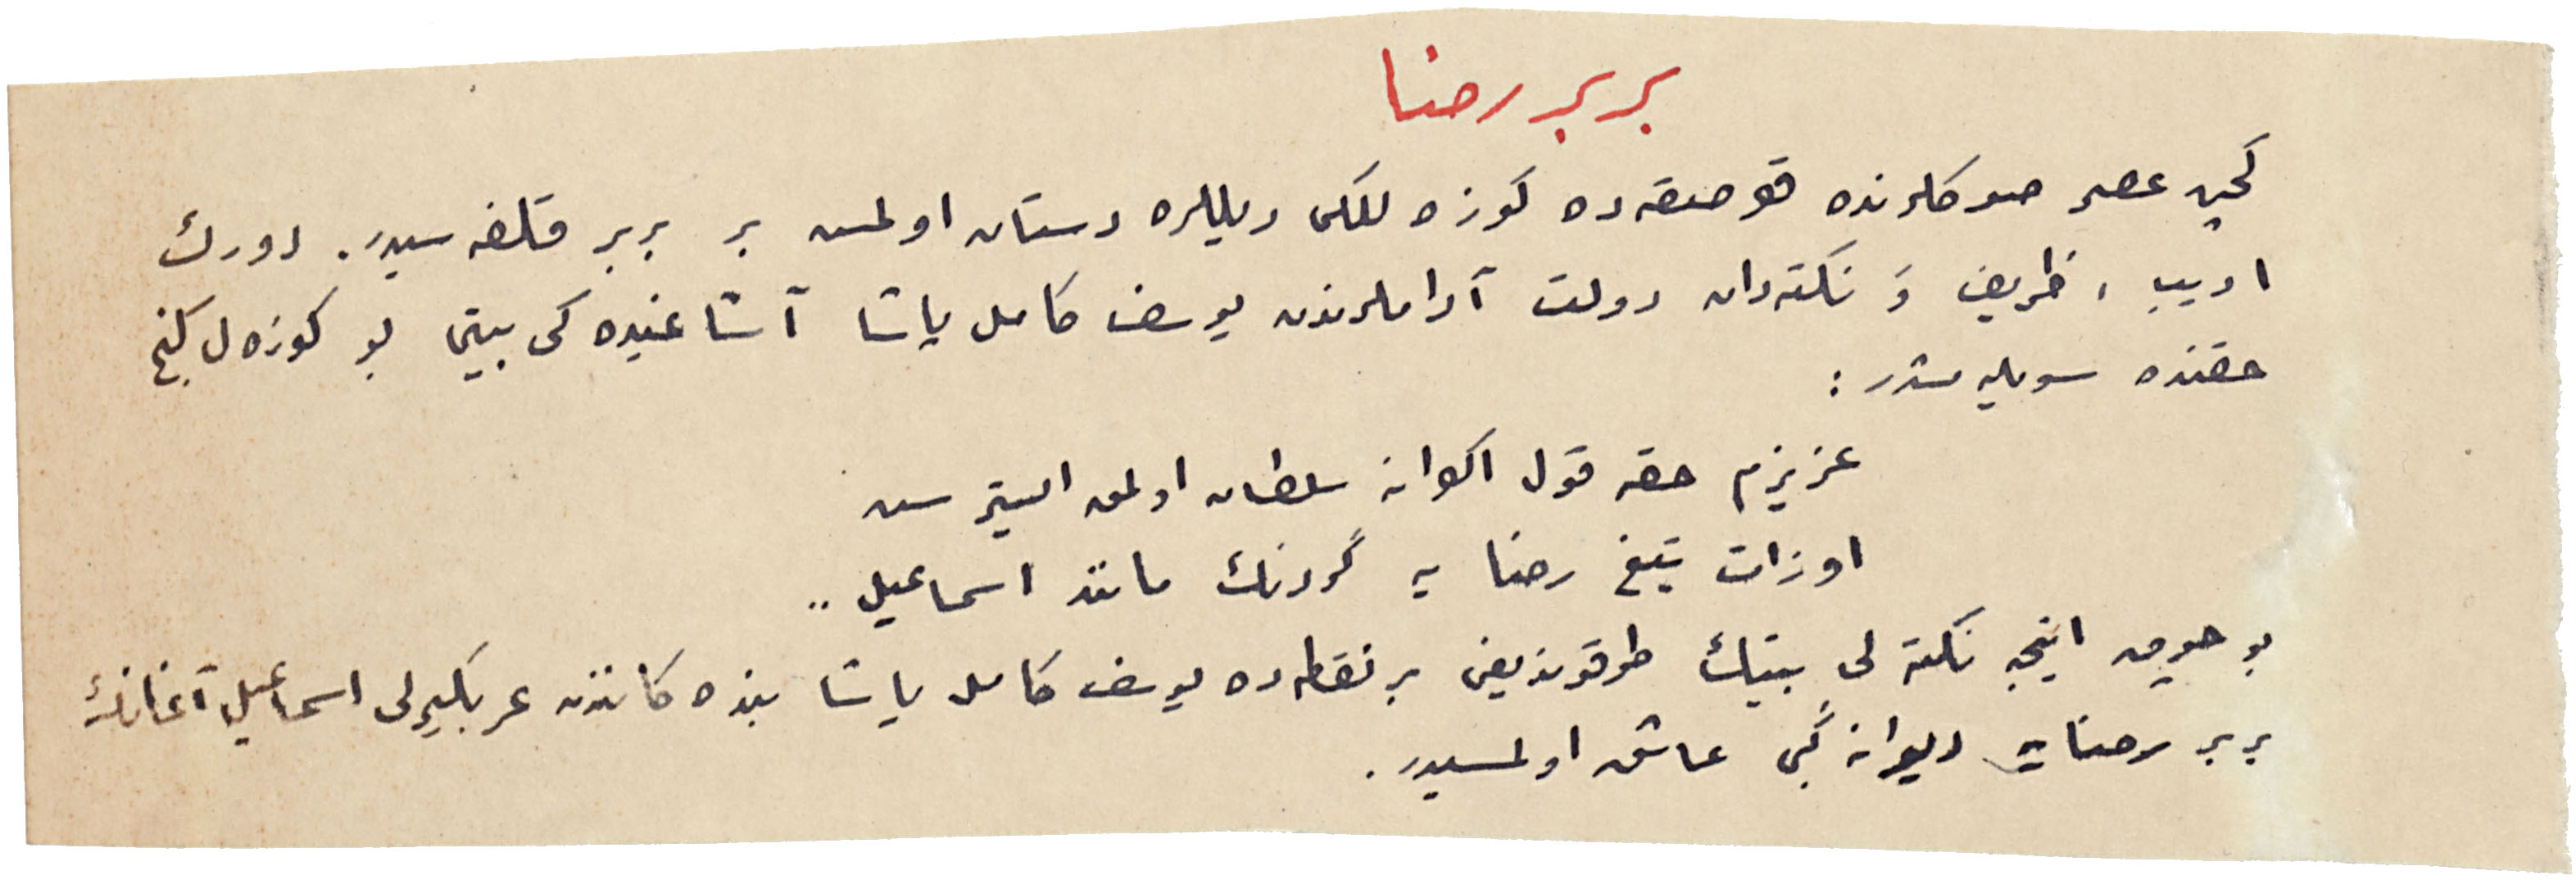 بربر رضا
كچن عصر صوكلرنده قوصقه ده كوزه للكى ديللره دستان اولمش بر بربر قلفه سيدر. دورك
اديب ، ظريف وَ نكته دان دولت آداملرندن يوسف كامل پاشا آشاغيده كى بيتى بو كوزه ل كنج
حقنده سويله مشدر :
عزيزم حقه قول اكوانه سلطان اولمق ايسترسن
اوزات تيغ رضا يه گردنك مانند اسماعيل ..
بو چوق اينجه نكته لى بيتك طوقونديغى بر نقطه ده يوسف كامل پاشا بنده كانندن عربكيرلى اسماعيل آغانك
بربر رضا يه ديوانه گبى عاشق اولمسيدر .